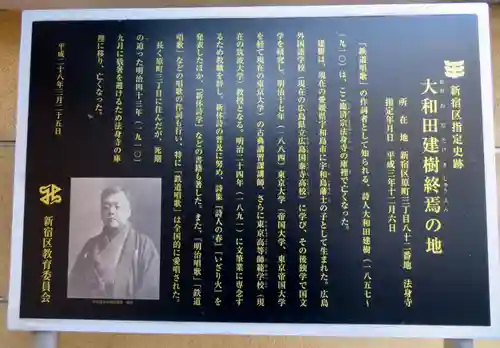 新宿区指定史跡
大和田建樹終焉の地
おおわだたてきしゅうえん
所在地 新宿区原町三丁目八十二番地 法身寺
指定年月日 平成三年十二月六日
『鉄道唱歌』の作詞者として知られる、詩人大和田建樹(一八五七~
一九一〇)は、ここ臨済宗法身寺の庫裡で亡くなった。
建樹は、現在の愛媛県宇和島市に宇和島藩士の子として生まれた。広島
外国語学校(現在の広島県立広島国泰寺高校)に学び、その後独学で国文
学を研究し、明治十七年(一八八四)東京大学(帝国大学、東京帝国大学
を経て現在の東京大学)の古典講習課講師、さらに東京高等師範学校(現
在の筑波大学)教授となる。明治二十四年(一八九一)に文筆業に専念す
るため教職を辞し、新体詩の普及に努め、詩集『詩人の春』『いさり火』を
発表したほか、『新体詩学』などの書籍も著した。また、『明治唱歌』『鉄道
唱歌』などの唱歌の作詞も行い、特に『鉄道唱歌』は全国的に愛唱された。
長く原町三丁目に住んだが、死期
の迫った明治四十三年(一九一〇)
九月に残暑を避けるため法身寺の庫
裡に移り、亡くなった。
平成二十八年三月二十五日
新宿区教育委員会